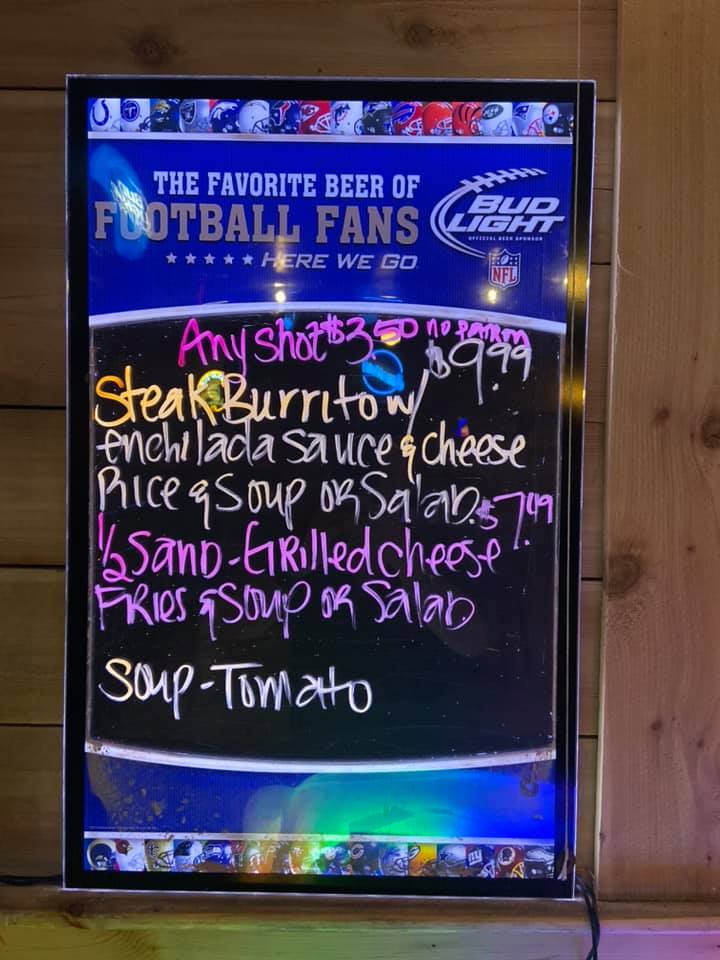 THE FAVORITE BEER OF
FOOTBALL FANS
HERE WE GO
BUD
LIGHT
OFFICIAL BEER SPONSOR
NFL
Any Shot $3.50 no
$9.99
Steak Burrito w/
enchilada sauce & cheese
Rice & Soup or Salad.
$7.49
1/2 Sand-Grilled cheese
Fries & Soup or Salad
Soup-Tomato